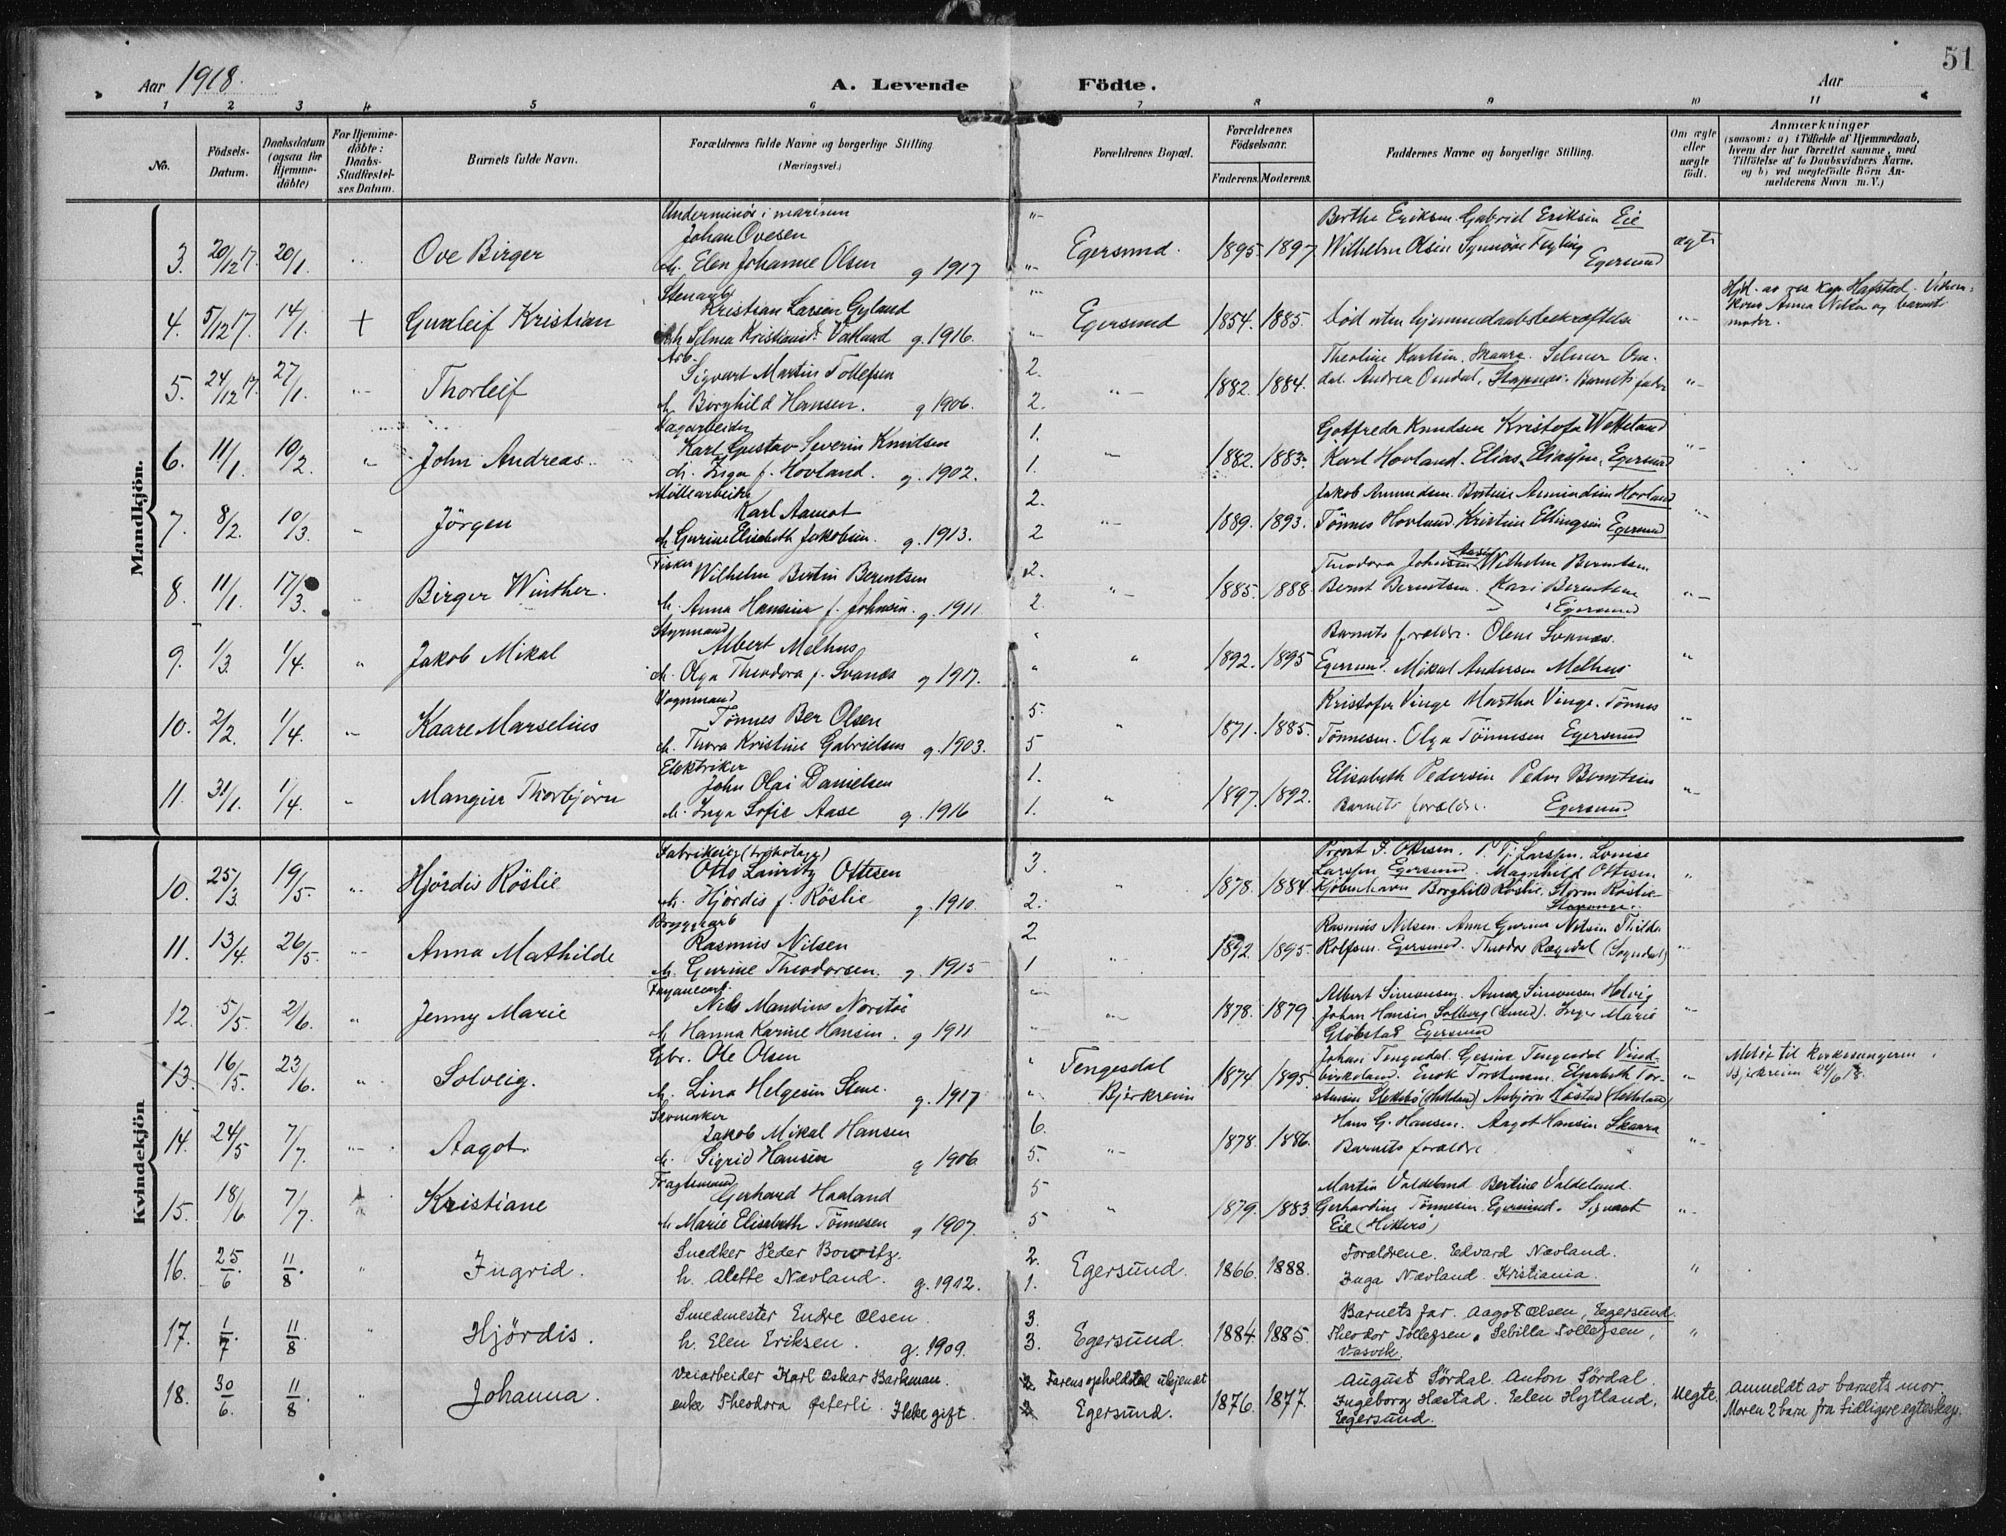 51
Aar 1918.
A. Levende Födte.
Aar
1 2 3 4 5 6 7 8 9 10 11
No.
Födsels-Datum.
Daabsdatum (ogsaa for Hjemme-döbte)
For Hjemme-döbte: Daabs-Stadfæstel-ses Datum.
Barnets fulde Navn.
Forældrenes fulde Navne og borgerlige Stilling. (Næringsvei.)
Forældrenes Bopæl.
Forældrenes Födselsaar.
Faderens. Moderens.
Faddernes Navne og borgerlige Stilling.
Om ægte eller uægte födt.
Anmærkninger
(saasom: a) i Tilfælde af Hjemmedaab, hvem der har forrettet samme, med Tilföielse af to Daabsvidners Navne, og b) ved uægtefödte Börn An-melderens Navn m. V.)
Mandkjön.
Underminör i marinen
Johan Ovesen
Berthe Eriksen. Gabriel Eriksen Eie
3. 20/12 17. 20/1. Ove Birger h. Elen Johanne Olsen g 1917 Egersund. 1895. 1897. Wilhelm Olsen Egersund ægte
Stenarb
Kristian Larsen Gyland
4. 5/12 17. 14/1. + Gunleif Kristian h. Selma Kristians. Vatland g. 1916. Egersund 1854. 1885. Død uten hjemmedaabsbekræftelse
Anna Nilsen og barnets moder.
Arb.
Sigvart Martin Tollefsen 2.
Theoline Karlsen, Skaara. Selmer Om-
5. 24/12 17. 27/1. Thorleif h. Borghild Hansen. g 1906. 2. 1882. 1884. dal. Andrea Omdal, Stapnæs. Barnets fader
Karl Gustav Severin Knutsen 1.
Gotfreda Knudsen
6. 11/1. 10/2. John Andreas. h. Inga f. Hovland. g. 1902. 1. 1882. 1883. Karl Hovland. Elias Eliassen, Egersund
Möllearbeider
Karl Aamot 2.
Jakob Amundsen. Bertine Amundsen Hovland
7. 8/2. 10/3. Jörgen h. Gurine Elisabeth Jakobsen. g. 1913. 2 1889. 1893. Tönnes Hovland. Kristine Ellingsen Egersund
Fisker Wilhelm Bertin Berentsen 2.
Theodora Johnsen Aase, Wilhelm Berntsen
8. 11/1. 17/3. Birger Winther. h. Anna Hansine f. Johnsen. g. 1911. 2. 1885. 1888. Bernt Berntsen. Kari Berentsen Egersund
Styrmand
Albert Melhus
Barnets forældre. Olene Svanæs.
9. 1/3. 1/4. Jakob Mikal h. Olga Theodora f. Svanæs g 1917. 1892. 1895 Egersund. Mikal Andersen Melhus
Vognmand
Tönnes Ber Olsen 5.
Kristofer Vinge Martha Vinge. Tönnes
10. 2/2. 1/4. Kaare Marselius h. Thora Kristine Gabrielsen g. 1903. 5 1871. 1885. Tönnesen. Olga Tönnesen Egersund
Elektriker
John Olai Danielsen 1.
Elisabeth Pedersen Peder Berntsen
11. 31/1. 1/4. Thorbjörn h. Inga Sofie Aase g. 1916 1. 1897. 1892. Barnets forældre. Egersund
Kvindekjön
Otto Lauritz Ottesen 3.
Larsen Egersund. Magnhild Ottesen
10. 25/3 19/5. Hjördis Röslie h. Hjördis f. Röslie g. 1910. 2. 1878. 1884. Kjöbenhavn Borghild Röslie. Storm Röslie
Stavanger.
Bryggearb
Rasmus Nilsen 2.
Rasmus Nilsen. Anne Gurine Nilsen Thilda
11. 13/4. 26/5. Anna Mathilde h. Gurine Theodorsen. g. 1915 1 1892. 1895. Rolfsen. Egersund. Theodor Rægedal (Sogndal)
Nils Mandius
Albert Simonsen. Anna Simonsen
12. 5/5. 2/6. Jenny Marie h Hanna Karine Hansen. g 1911 1878. 1879 Johan Hansen Solberg (Lund). Inger Marie
Egersund
Gbr. Ole Olsen Tengesdal
Johan Tengesdal. Gesine Tengesdal
13. 16/5. 23/6. Solveig. h. Lina Helgesen Stene. g. 1917 Bjerkreim 1874 1895. birkeland. Enok Torstensen. Elisabeth Tor-
Meldt til kirkesangeren Bjerkreim 24/6 18.
Skomaker
Jakob Mikal Hansen 6.
Hans G. Hansen. Aagot Hansen Skaara
14. 24/5 7/7. Aagot. h. Sigrid Hansen g 1906 5. 1878. 1886. Barnets forældre.
Fragtemand
Gerhard Haaland 5
Martin Valdeland Bertine Valdeland.
15. 18/6. 7/7. Kristiane h. Marie Elisabeth Tönnesen g 1907. 5 1879. 1883 Gerhardine Tönnesen. Egersund. Sigvart
Eie (Hitterö)
Snedker Peder Bowitz. 2.
Forældrene. Edvard Nævland.
16. 25/6. 11/8. Ingrid. h. Alette Nævland. g. 1912. 1. Egersund. 1866. 1888. Inga Nævland. Kristiania.
Smedmester Endre Olsen. 3.
Barnets far. Aagot Olsen, Egersund.
17. 1/7 11/8 Hjørdis. h. Elen Eriksen. g. 1909. 3. Egersund. 1884. 1885. Theodor Tollefsen, Sebilla Tollefsen,
Veiarbeider Karl Oskar Barkman. Farens opholdsted ukjendt
August Sördal. Anton Sördal.
18. 30/6. 11/8 Johanna. enke Theodora Østerli. Ikke gift. Egersund. 1876. 1877. Ingeborg Hæstad. Elen Hojtland, Uegte.
Egersund.
Anmeldt av barnets mor.
Moren 2 barn fra tidligere egteskap.